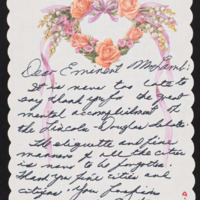 Dear Eminent Mr. Lamb:
It is never too late to
say thank you for the great
mental accomplishment of
the Lincoln-Douglas debate.
The etiquette and fine
manners of all the cities
is never to be forgotten.
Thank you fine cities and
citizens. You